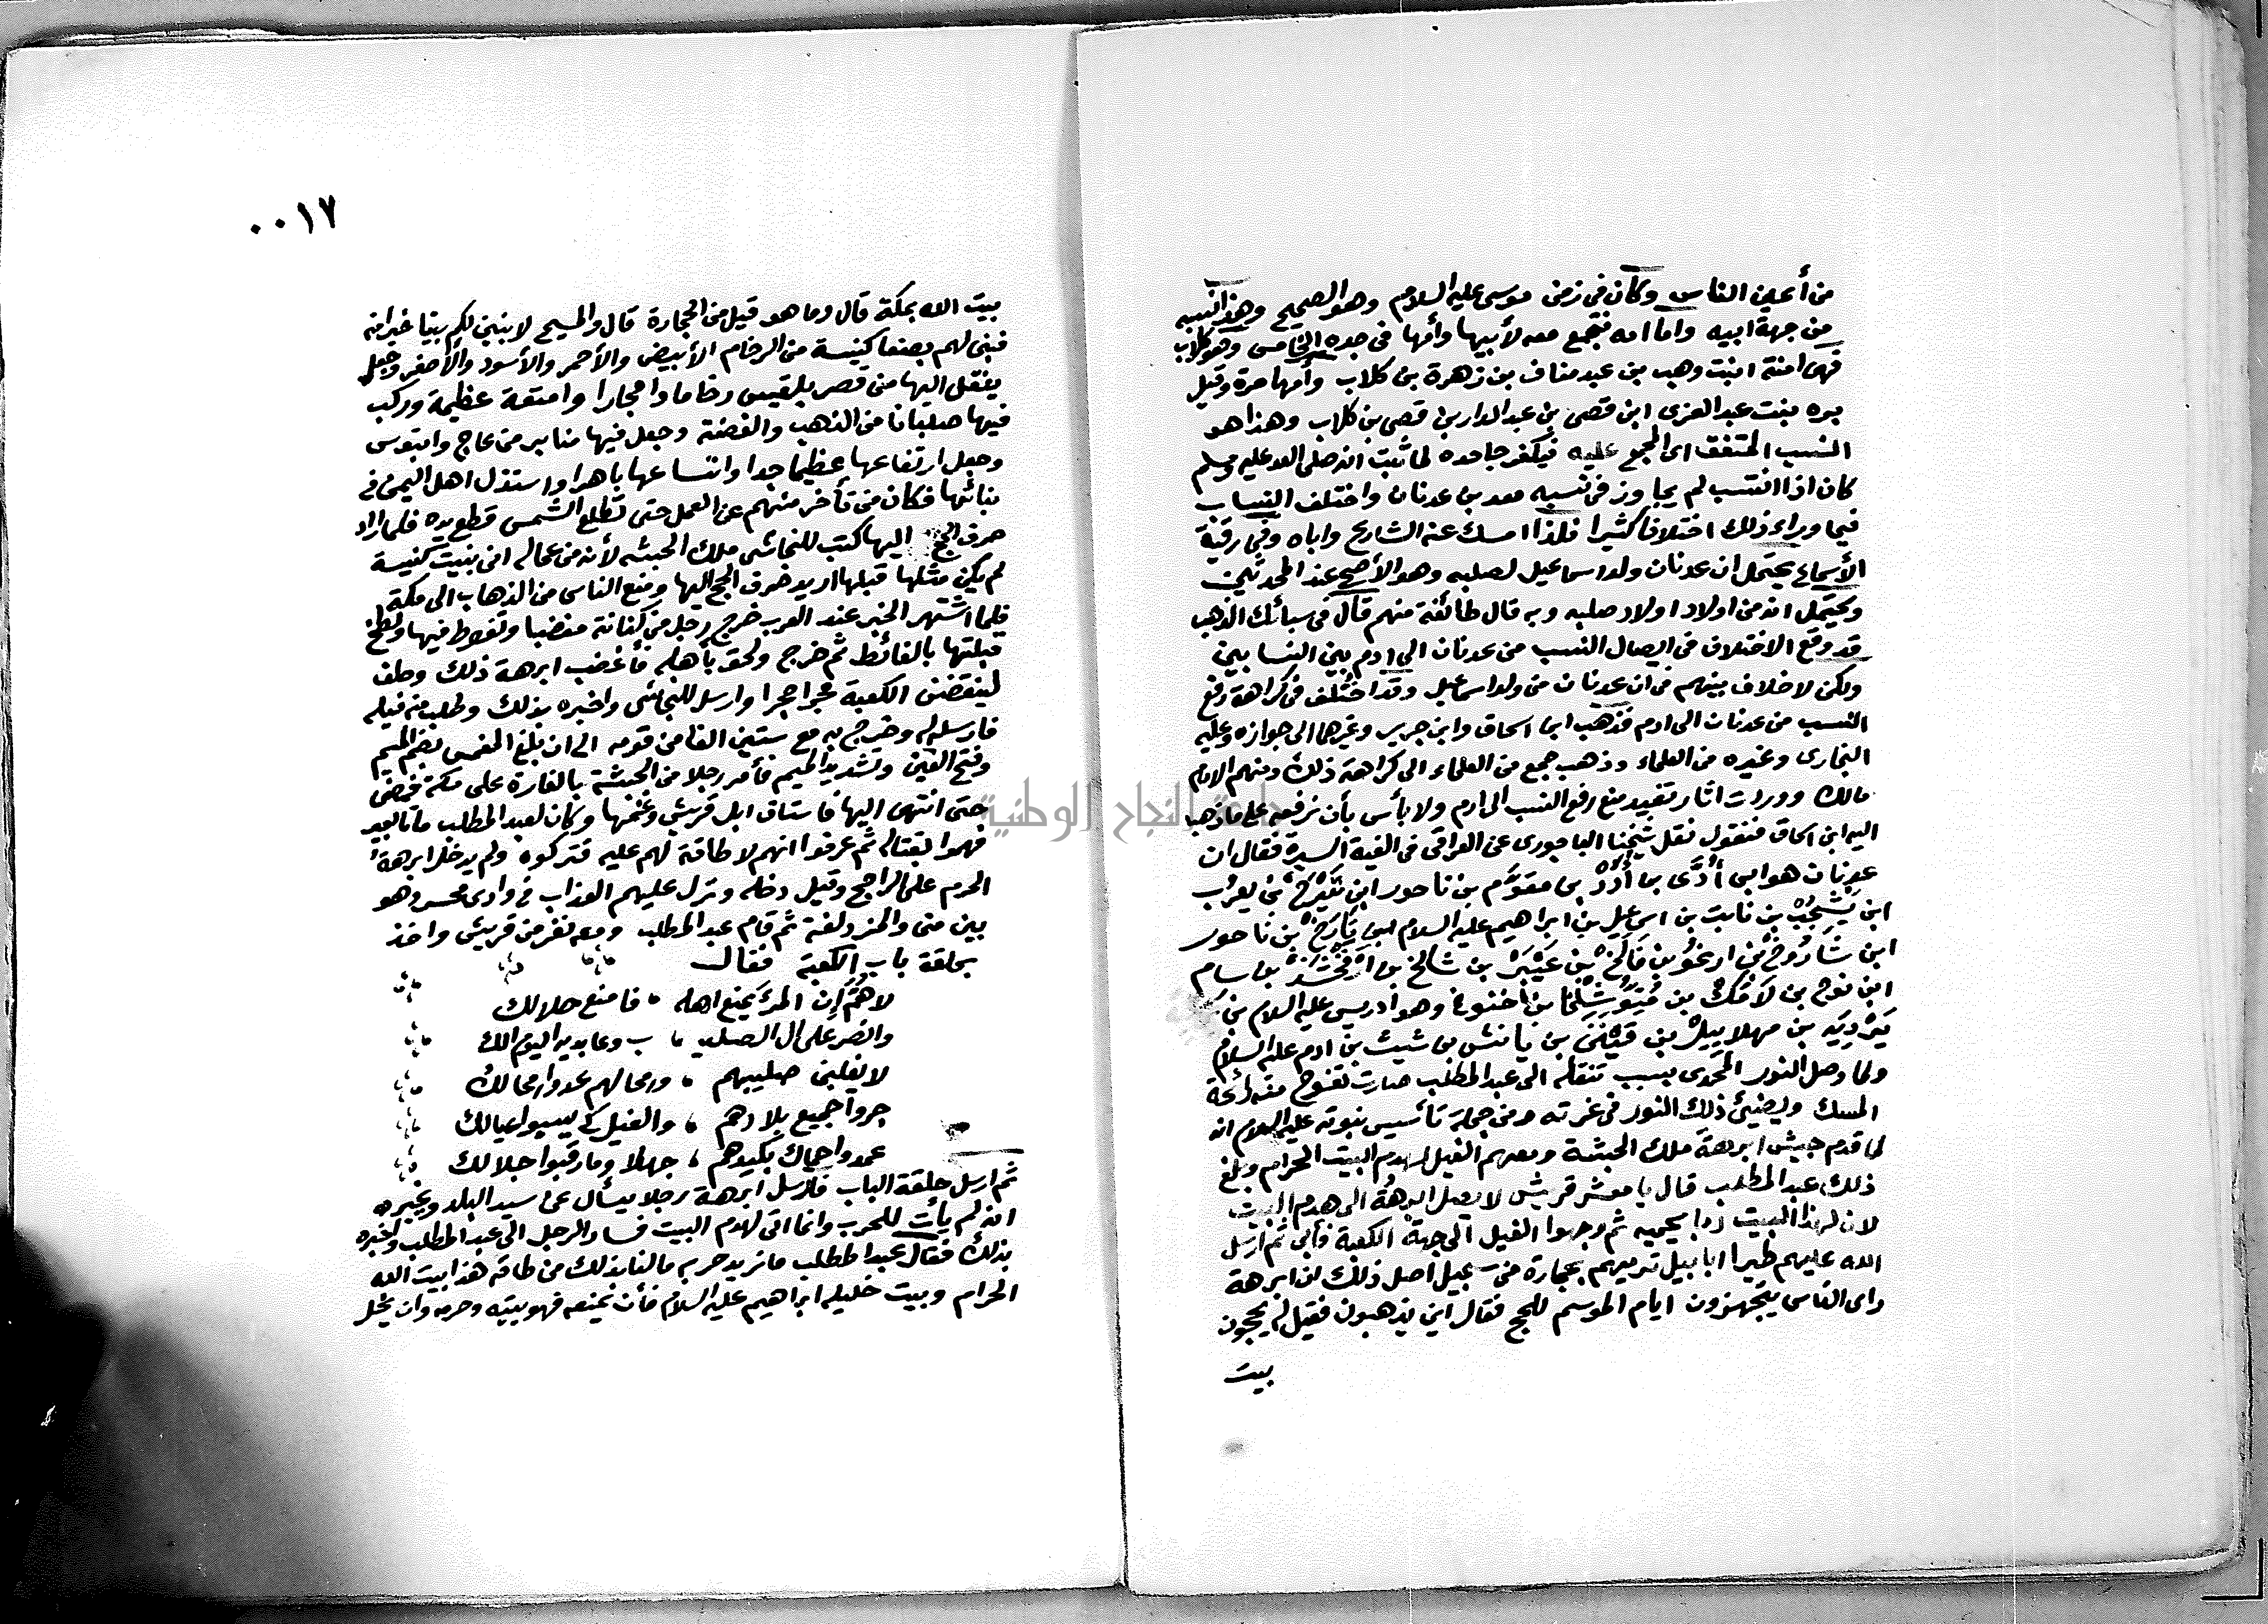 من أعين الناس وكان في زمن موسى عليه السلام وهو الصحيح وهذا نسبه
من جهة ابيه واما امه فتجمع معه لأبيها وأمها في جده الخامس وهو كلاب
فهي امنة ابنت وهب بن عبد مناف بن زهرة بن كلاب وأمها مرة وقيل
بره بنت عبد العزى ابن قصى بن عبد الدار بن قصى بن كلاب وهذا هو
النسب المتفق اى المجمع عليه فيكفر جاحده لما ثبت انه صلى الله عليه وسلم
كان اذا انتسب لم يجاوز في نسبه معد بن عدنان واختلف النساب
فيما وراء ذلك اختلافا كثيرا فلذا امسك عنه الشارع واباه وفي رقية
الأسماع يحتمل ان عدنان ولد اسماعيل لصلبه وهو الأصح عند المحدثين
ويحتمل انه من اولاد اولاد صلبه وبه قال طائفة منهم قال في سبائك الذهب
قد وقع الاختلاف في ايصال النسب من عدنان الى ادم بين النسابين
ولكن لا خلاف بينهم في ان عدنان من ولد اسماعيل وقد اختلف في كراهة رفع
النسب من عدنان الى ادم فذهب ابن اسحاق وابن جرير وغيرهما الى جوازه وعليه
البخارى وغيره من العلماء وذهب جمع من العلماء الى كراهة ذلك ومنهم الامام
مالك ووردت اثار تفيد منع رفع النسب الى ادم ولا بأس بأن نرفعه على ما ذهب
اليه ابن اسحاق فنقول نقل شيخنا الباجورى عن العراقي في الفية السيرة فقال ان
عدنان هو ابن أُدَّى بن أُدَدْ بن مقوَّم بن ناحور ابن تَيْرَحْ بن يعرُب
ابن يَشْجُبْ بن نابت بن اسمعيل بن ابراهيم عليه السلام ابن تَارَخْ بن ناحور
ابن شَارُوخْ بن ارغُو بن فَالَخْ بن عَيْبَرْ بن شالخ بن ارْفَخْشَدْ بن سام
ابن نوح بن لَامَكْ بن مُتَوَشْلِخْ بن أخنوخ وهو ادريس عليه السلام بن
يَرْدِيَد بن مهلاييلْ بن قَيْنَنْ بن يانش بن شيث بن ادم عليه السلام
ولما وصل النور المحمدى بسبب تنقله الى عبد المطلب صارت تفوح منه رائحة
المسك ويضيئ ذلك النور في غرته ومن جملة تأسيس نبوته عليه السلام انه
لما قدم جيش ابرهة ملك الحبشة ومعهم الفيل لهدم البيت الحرام وبلغ
ذلك عبد المطلب قال يا معشر قريش لا يصل ابرهةُ الى هدم البيت
لان لهذا البيت ربا يحميه ثم وجهوا الفيل الى جهة الكعبة فأبى ثم ارسل
الله عليهم طيرا ابابيل ترميهم بحجارة من سجيل اصل ذلك ان ابرهة
راى الناس يتجهزون ايام الموسم للحج فقال اين يذهبون فقيل له يحجون
بيت
٠٠١٧
بيت الله بمكة قال وما هو قيل من الحجارة قال والمسيح لابنين لكم بيتا خيرا منه
فبنى لهم بصنعا كنيسة من الرخام الأبيض والأحمر والأسود والأصفر وجعل
ينقل اليها من قصر بلقيس رخاما واحجارا وامتعة عظيمة وركب
فيها صلبانا من الذهب والفضة وجعل فيها منابر من عاج وابنوس
وجعل ارتفاعها عظيما جدا واتساعها باهرا واستذل اهل اليمن في
بنائها فكان من تأخر منهم عن العمل حتى تطلع الشمس قطع يده فلما اراد
صرف الحج اليها كتب للنجاشى ملك الحبشه لأنه من عماله انى بنيت كنيسة
لم يكن مثلها قبلها اريد صرف الحج اليها ومنع الناس من الذهاب الى مكة
فلما اشتهر الخبر عند العرب خرج رجل من كنانة مغضبا وتغوط فيها ولطخ
قبلتها بالغائط ثم خرج ولحق بأهله فأغضب ابرهة ذلك وحلف
لينقضن الكعبة حجرا حجرا وارسل للنجاشى واخبره بذلك وطلب منه فيله
فارسله له وخرج به مع ستين الفا من قومه الى ان بلغ المغمس بضم الميم
وفتح الغين وتشديد الميم فأمر رجلا من الحبشة بالغارة على مكة فمضى
حتى انتهى اليها فاستاق ابل قريش وغنمها وكان لعبد المطلب مائتا بعير
فهموا بقتاله ثم عرفوا انهم لا طاقة لهم عليه فتركوه ولم يدخل ابرهة
الحرم على الراجح وقيل دخله ونزل عليهم العذاب في وادى محسر وهو
بين منى والمزدلفة ثم قام عبد المطلب ومعه نفر من قريش واخذ
بحلقة باب الكعبة فقال
لاهُمَّ إن المرءَ يمنع اهله ، فامنع حلالك
وانصر على ال الصليـ ، ـب وعابديه اليوم الك
لا يغلبن صليبهم ، ومحالهم عدوا محالك
جروا جميع بلادهم ، والفيل كي يسبوا عيالك
عمدوا حماك بكيدهم ، جهلا وما رقبوا جلالك
ثم ارسل حلقة الباب فارسل ابرهة رجلا يسأل عن سيد البلد ويخبره
انه لم يأت للحرب وانما اتى لهدم البيت فسار الرجل الى عبد المطلب واخبره
بذلك فقال عبد المطلب ما نريد حربه مالنا بذلك من طاقه هذا بيت الله
الحرام وبيت خليله ابراهيم عليه السلام فأن يمنعه فهو بيته وحرمه وان يخل
جامعة النجاح الوطنية